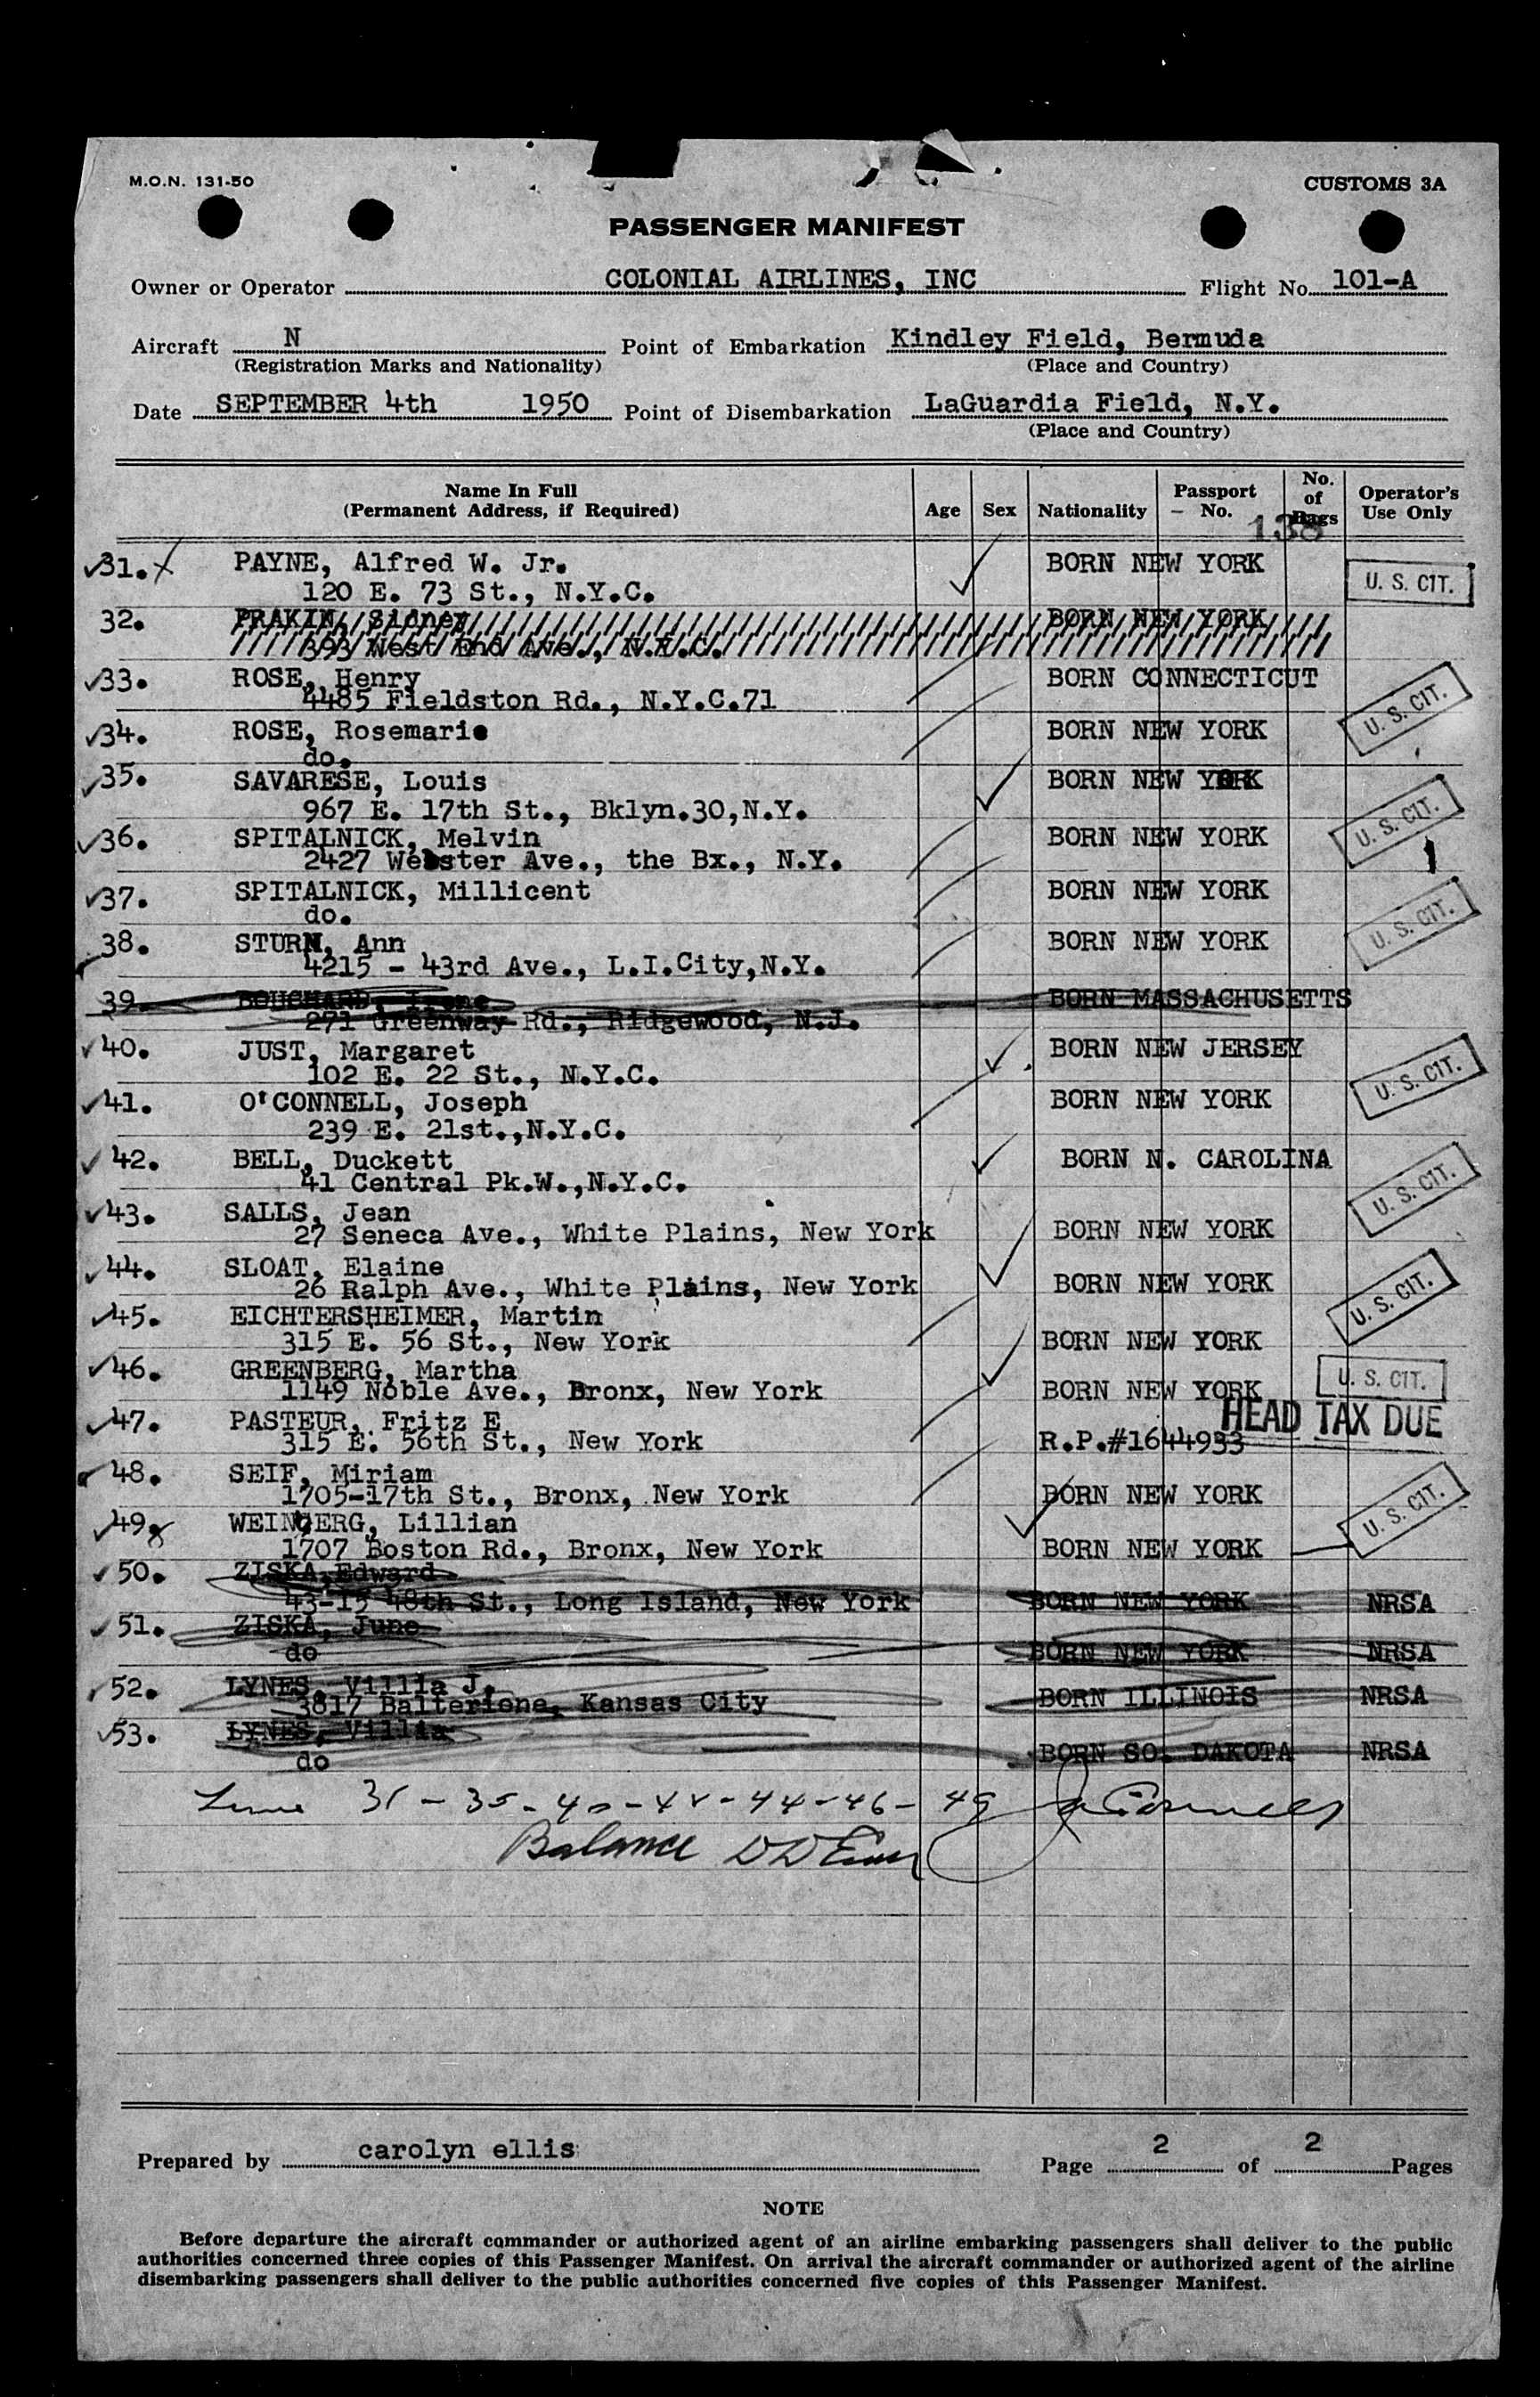 M.O.N. 131-50
CUSTOMS 3A
PASSENGER MANIFEST
Owner or Operator COLONIAL AIRLINES, INC Flight No. 101-A
Aircraft N Point of Embarkation Kindley Field, Bermuda
(Registration Marks and Nationality) (Place and Country)
Date SEPTEMBER 4th 1950 Point of Disembarkation LaGuardia Field, N.Y.
(Place and Country)
Name In Full
(Permanent Address, if Required) Age Sex Nationality Passport No. No. of Bags Operator's Use Only
138
31. PAYNE, Alfred W. Jr. BORN NEW YORK U. S. CIT.
120 E. 73 St., N.Y.C.
32. PRAKIN, Sidney BORN NEW YORK
393 West End Ave., N.Y.C.
33. ROSE, Henry BORN CONNECTICUT
4485 Fieldston Rd., N.Y.C.71 U. S. CIT.
34. ROSE, Rosemarie BORN NEW YORK
do.
35. SAVARESE, Louis BORN NEW YORK
967 E. 17th St., Bklyn.30,N.Y. U. S. CIT.
36. SPITALNICK, Melvin BORN NEW YORK
2427 Webster Ave., the Bx., N.Y.
37. SPITALNICK, Millicent BORN NEW YORK
do. U. S. CIT.
38. STURN, Ann BORN NEW YORK
4215 - 43rd Ave., L.I.City,N.Y.
39. BOUCHARD, Irene BORN MASSACHUSETTS
271 Greenway Rd., Ridgewood, N.J.
40. JUST, Margaret BORN NEW JERSEY
102 E. 22 St., N.Y.C. U. S. CIT.
41. O'CONNELL, Joseph BORN NEW YORK
239 E. 21st.,N.Y.C.
42. BELL, Duckett BORN N. CAROLINA
41 Central Pk.W.,N.Y.C. U. S. CIT.
43. SALLS, Jean
27 Seneca Ave., White Plains, New York BORN NEW YORK
44. SLOAT, Elaine
26 Ralph Ave., White Plains, New York BORN NEW YORK U. S. CIT.
45. EICHTERSHEIMER, Martin
315 E. 56 St., New York BORN NEW YORK
46. GREENBERG, Martha U. S. CIT.
1149 Noble Ave., Bronx, New York BORN NEW YORK
47. PASTEUR, Fritz E HEAD TAX DUE
315 E. 56th St., New York R.P.#1644933
48. SEIF, Miriam
1705-17th St., Bronx, New York BORN NEW YORK U. S. CIT.
49. WEINBERG, Lillian
1707 Boston Rd., Bronx, New York BORN NEW YORK
50. ZISKA,Edward
43-15 48th St., Long Island, New York BORN NEW YORK NRSA
51. ZISKA, June
do BORN NEW YORK NRSA
52. LYNES, Villia J.
3817 Balteriene, Kansas City BORN ILLINOIS NRSA
53. LYNES, Villia
do BORN SO. DAKOTA NRSA
31 - 35 - 40 - 42 - 44 - 46 - 49
Balance
Prepared by carolyn ellis Page 2 of 2 Pages
NOTE
Before departure the aircraft commander or authorized agent of an airline embarking passengers shall deliver to the public
authorities concerned three copies of this Passenger Manifest. On arrival the aircraft commander or authorized agent of the airline
disembarking passengers shall deliver to the public authorities concerned five copies of this Passenger Manifest.